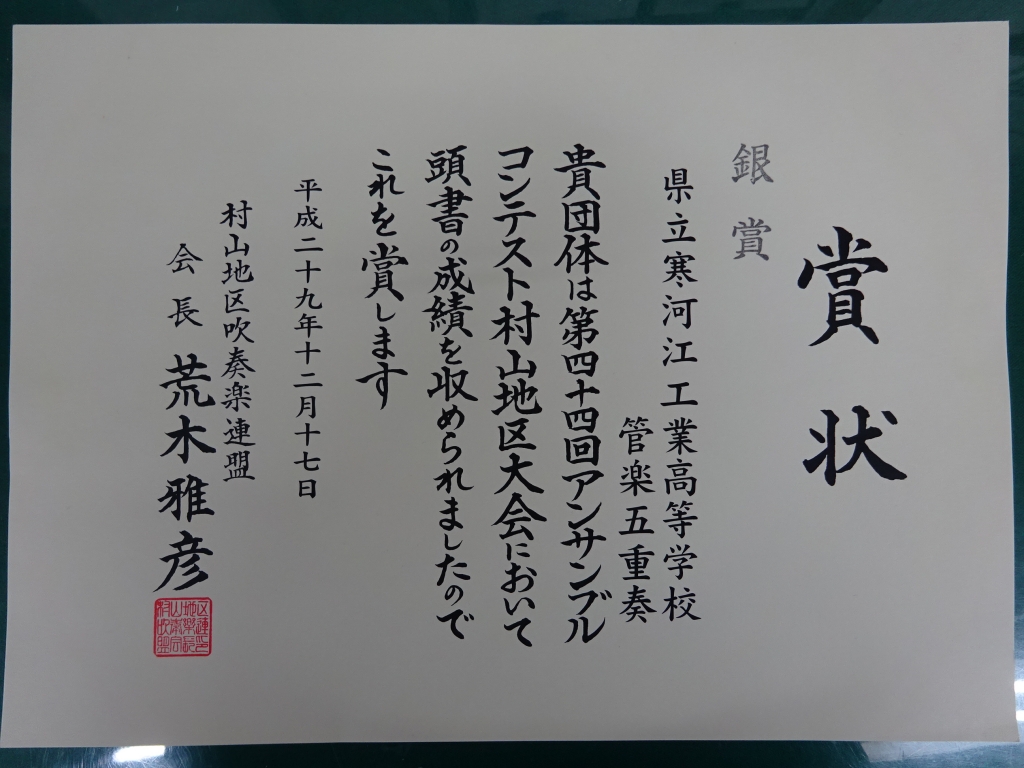 賞状
銀賞
県立寒河江工業高等学校
管楽五重奏
貴団体は第四十四回アンサンブル
コンテスト村山地区大会において
頭書の成績を収められましたので
これを賞します
平成二十九年十二月十七日
村山地区吹奏楽連盟
会長 荒木雅彦